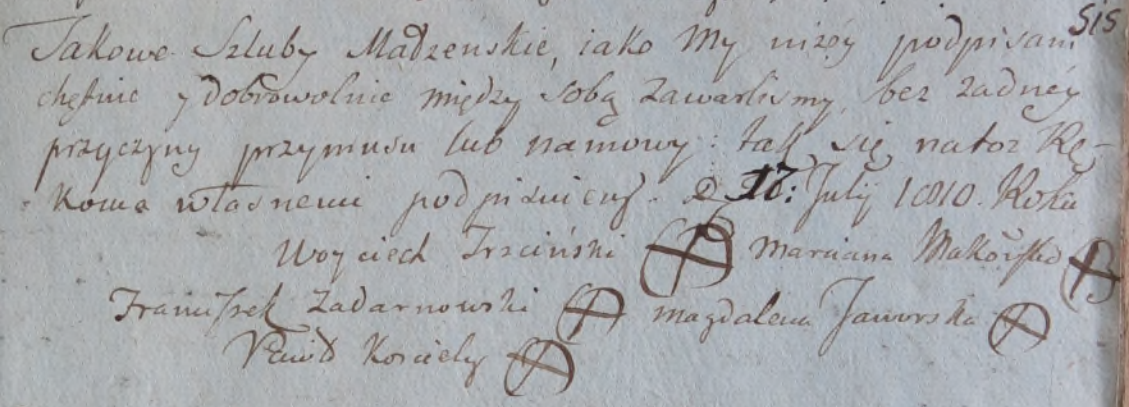 Takowe Szluby Madzenskie, iako My nizey podpisani
chętnie y dobrowolnie między sobą zawarlismy, bez zadnéy
przyczyny przymusu lub namowy: tak się na toz Rę-
koma własnemi podpisuiemy. D. 17: Julij 1810. Roku
Woyciech Trzciński Maryiana Makowska
Franciszek Zadarnowski Magdalena Jaworska
Koscielny